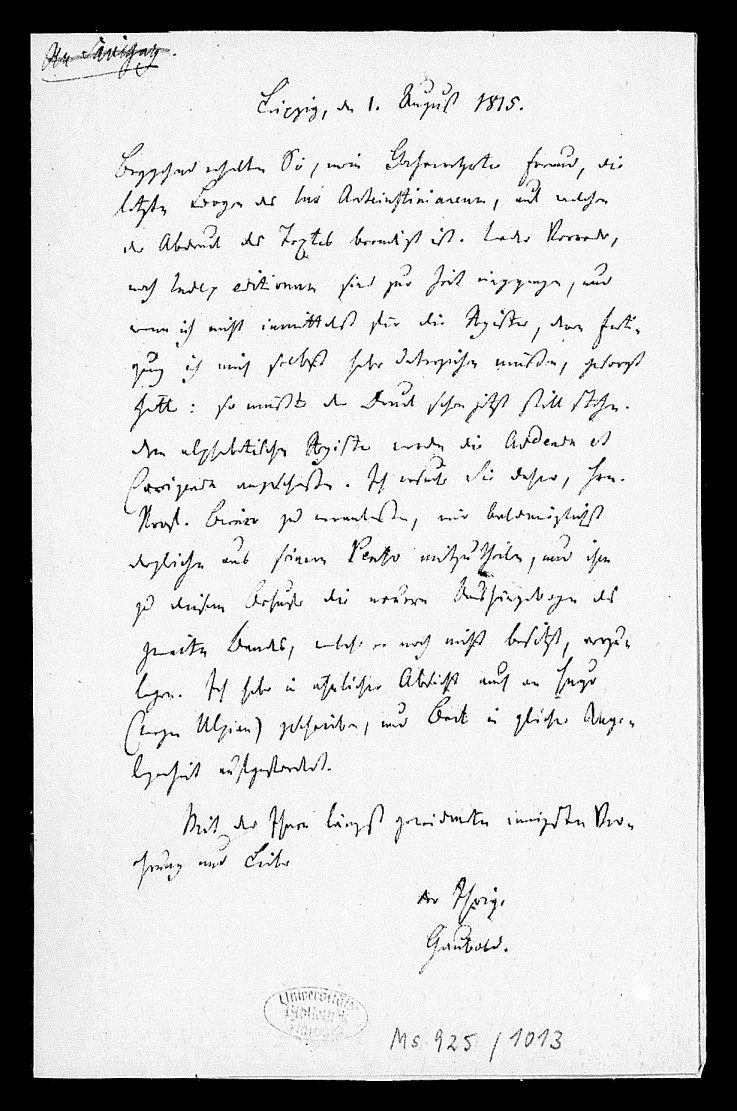 An Savigny.
Leipzig, den 1. August 1815.
Beygehend erhalten Sie, mein Hochverehrter Freund, die
letzten Bogen des Ius Anteiustinianeum, mit welchen
der Abdruck des Textes beendigt ist. Weder Vorrede,
noch Index editionum sind zur Zeit eingegangen, und
wenn ich nicht inmittelst für die Register, deren Ferti-
gung ich mich selbst habe unterziehen müssen, gesorgt
hätte: so müßte der Druck schon jetzt still stehen.
Dem alphabetischen Register werden die Addenda et
Corrigenda angeschlossen. Ich ersuche Sie daher, Hrn.
Prof. Biener zu veranlassen, mir baldmöglichst
dergleichen aus seinem Penso mitzutheilen, und ihm
zu diesem Behufe die neuern Aushängebogen des
zweiten Bandes, welche er noch nicht besitzt, vorzu-
legen. Ich habe in ähnlicher Absicht auch an Hugo
(wegen Ulpian) geschrieben, und Beck in gleicher Ange-
legenheit aufgefordert.
Mit der Ihnen längst gewidmeten innigsten Vereh-
rung und Liebe
der Ihrige
Haubold.
Universitäts
Bibliothek
Ms. 925 / 1013